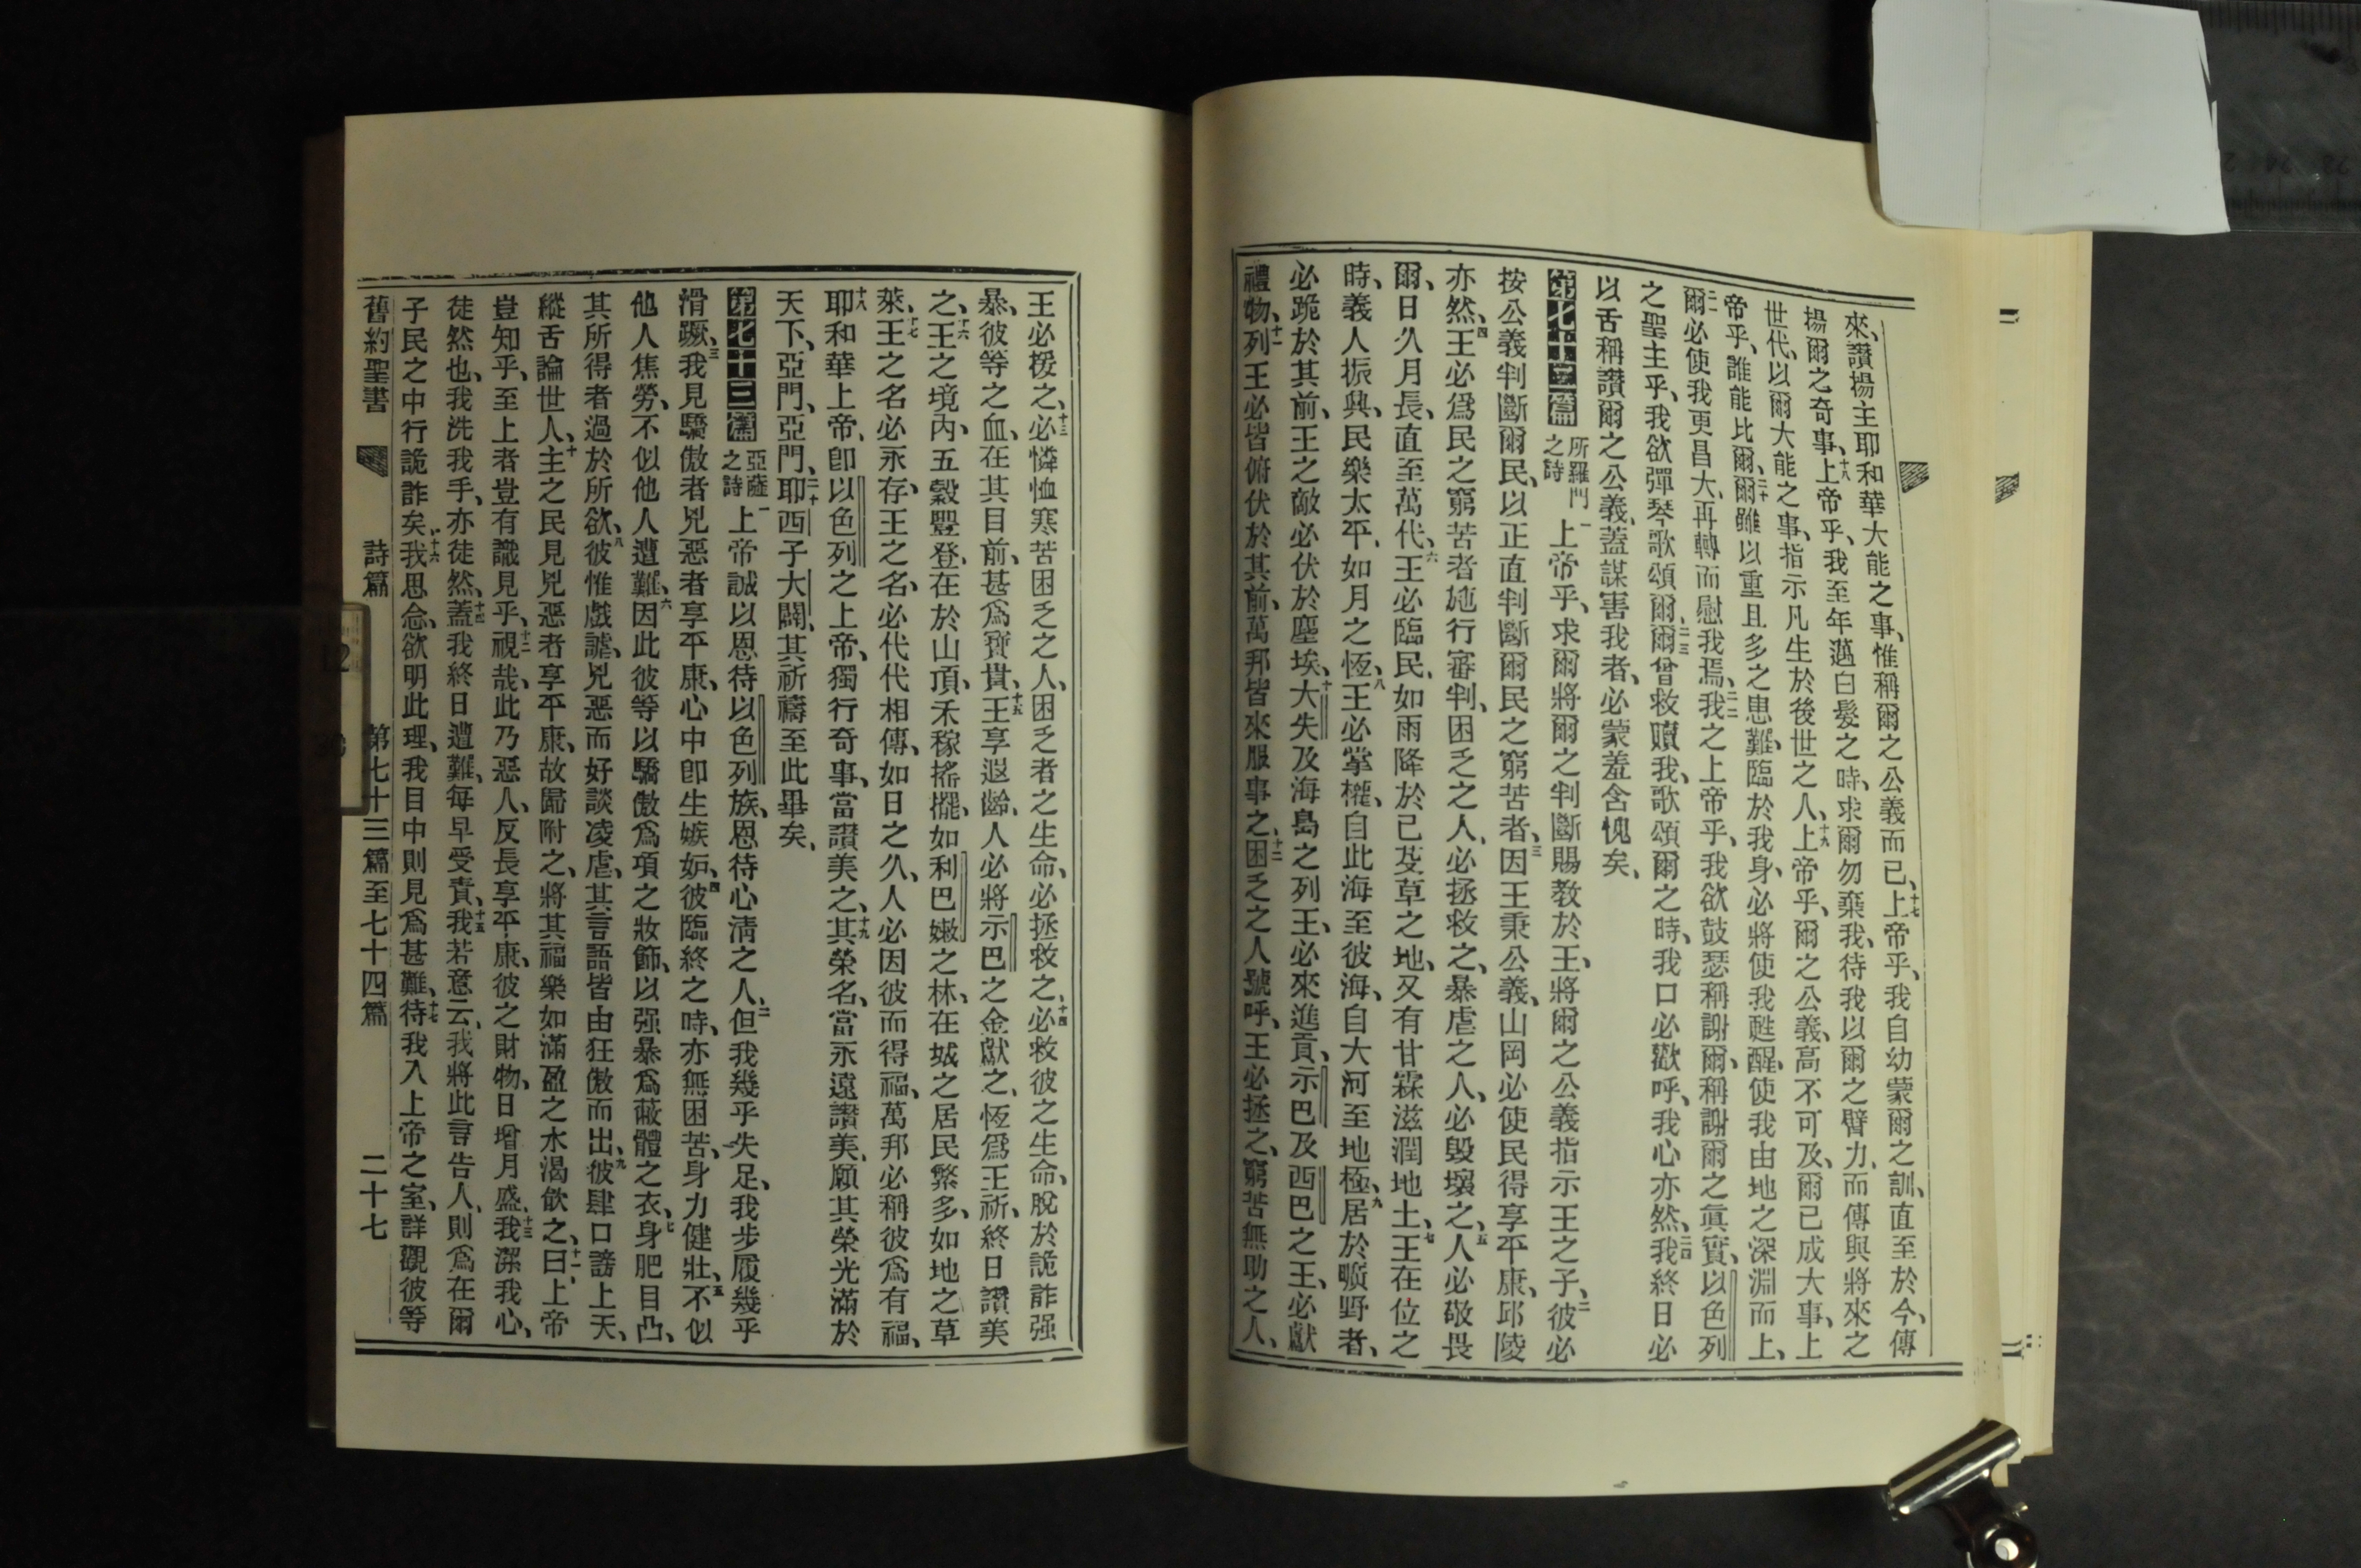 來、讚揚主耶和華大能之事、惟稱爾之公義而已、十七上帝乎、我自幼蒙爾之訓、直至於今、傳
揚爾之奇事、十八上帝乎、我至年邁白髮之時、求爾勿棄我、待我以爾之臂力、而傳與將來之
世代、以爾大能之事、指示凡生於後世之人、十九上帝乎、爾之公義、高不可及、爾已成大事、上
帝乎、誰能比爾、二十爾雖以重且多之患難、臨於我身、必將使我甦醒、使我由地之深淵而上、
二一爾必使我更昌大、再轉而慰我焉、二二我之上帝乎、我欲鼓瑟稱謝爾、稱謝爾之眞實、以色列
之聖主乎、我欲彈琴歌頌爾、二三爾曾救贖我、歌頌爾之時、我口必歡呼、我心亦然、二四我終日必
以舌稱讚爾之公義、蓋謀害我者、必蒙羞含愧矣、
第七十二篇 所羅門之詩 一上帝乎、求爾將爾之判斷賜教於王、將爾之公義指示王之子、二彼必
按公義判斷爾民、以正直判斷爾民之窮苦者、三因王秉公義、山岡必使民得享平康、邱陵
亦然、四王必爲民之窮苦者施行審判、困乏之人、必拯救之、暴虐之人、必毀壞之、五人必敬畏
爾、日久月長、直至萬代、六王必臨民、如雨降於已芟草之地、又有甘霖滋潤地土、七王在位之
時、義人振興、民樂太平、如月之恆、八王必掌權、自此海至彼海、自大河至地極、九居於曠野者、
必跪於其前、王之敵必伏於塵埃、十大失及海島之列王、必來進貢、示巴及西巴之王、必獻
禮物、十一列王必皆俯伏於其前、萬邦皆來服事之、十二困乏之人號呼、王必拯之、窮苦無助之人、
王必援之、十三必憐恤寒苦困乏之人、困乏者之生命、必拯救之、十四必救彼之生命、脫於詭詐强
暴、彼等之血、在其目前、甚爲寶貴、十五王享遐齡、人必將示巴之金獻之、恆爲王祈、終日讚美
之、十六王之境內、五穀豐登、在於山頂、禾稼搖擺、如利巴嫩之林、在城之居民繁多、如地之草
萊、十七王之名必永存、王之名、必代代相傳、如日之久、人必因彼而得福、萬邦必稱彼爲有福、
十八耶和華上帝、卽以色列之上帝、獨行奇事、當讚美之、十九其榮名、當永遠讚美、願其榮光滿於
天下、亞門、亞門、二十耶西子大闢、其祈禱至此畢矣、
第七十三篇 亞薩之詩 一上帝誠以恩待以色列族、恩待心淸之人、二但我幾乎失足、我步履幾乎
滑蹶、三我見驕傲者兇惡者享平康、心中卽生嫉妬、四彼臨終之時、亦無困苦、身力健壯、五不似
他人焦勞、不似他人遭難、六因此彼等以驕傲爲項之妝飾、以强暴爲蔽體之衣、七身肥目凸、
其所得者過於所欲、八彼惟戲謔、兇惡而好談凌虐、其言語皆由狂傲而出、九彼肆口謗上天、
縱舌論世人、十主之民見兇惡者享平康、故歸附之、將其福樂如滿盈之水渴飮之、十一曰、上帝
豈知乎、至上者豈有識見乎、十二視哉、此乃惡人、反長享平康、彼之財物、日增月盛、十三我潔我心、
徒然也、我洗我手、亦徒然、十四蓋我終日遭難、每早受責、十五我若意云、我將此言告人、則爲在爾
子民之中行詭詐矣、十六我思念、欲明此理、我目中則見爲甚難、十七待我入上帝之室、詳觀彼等
舊約聖書 詩篇 第七十三篇至七十四篇 二十七